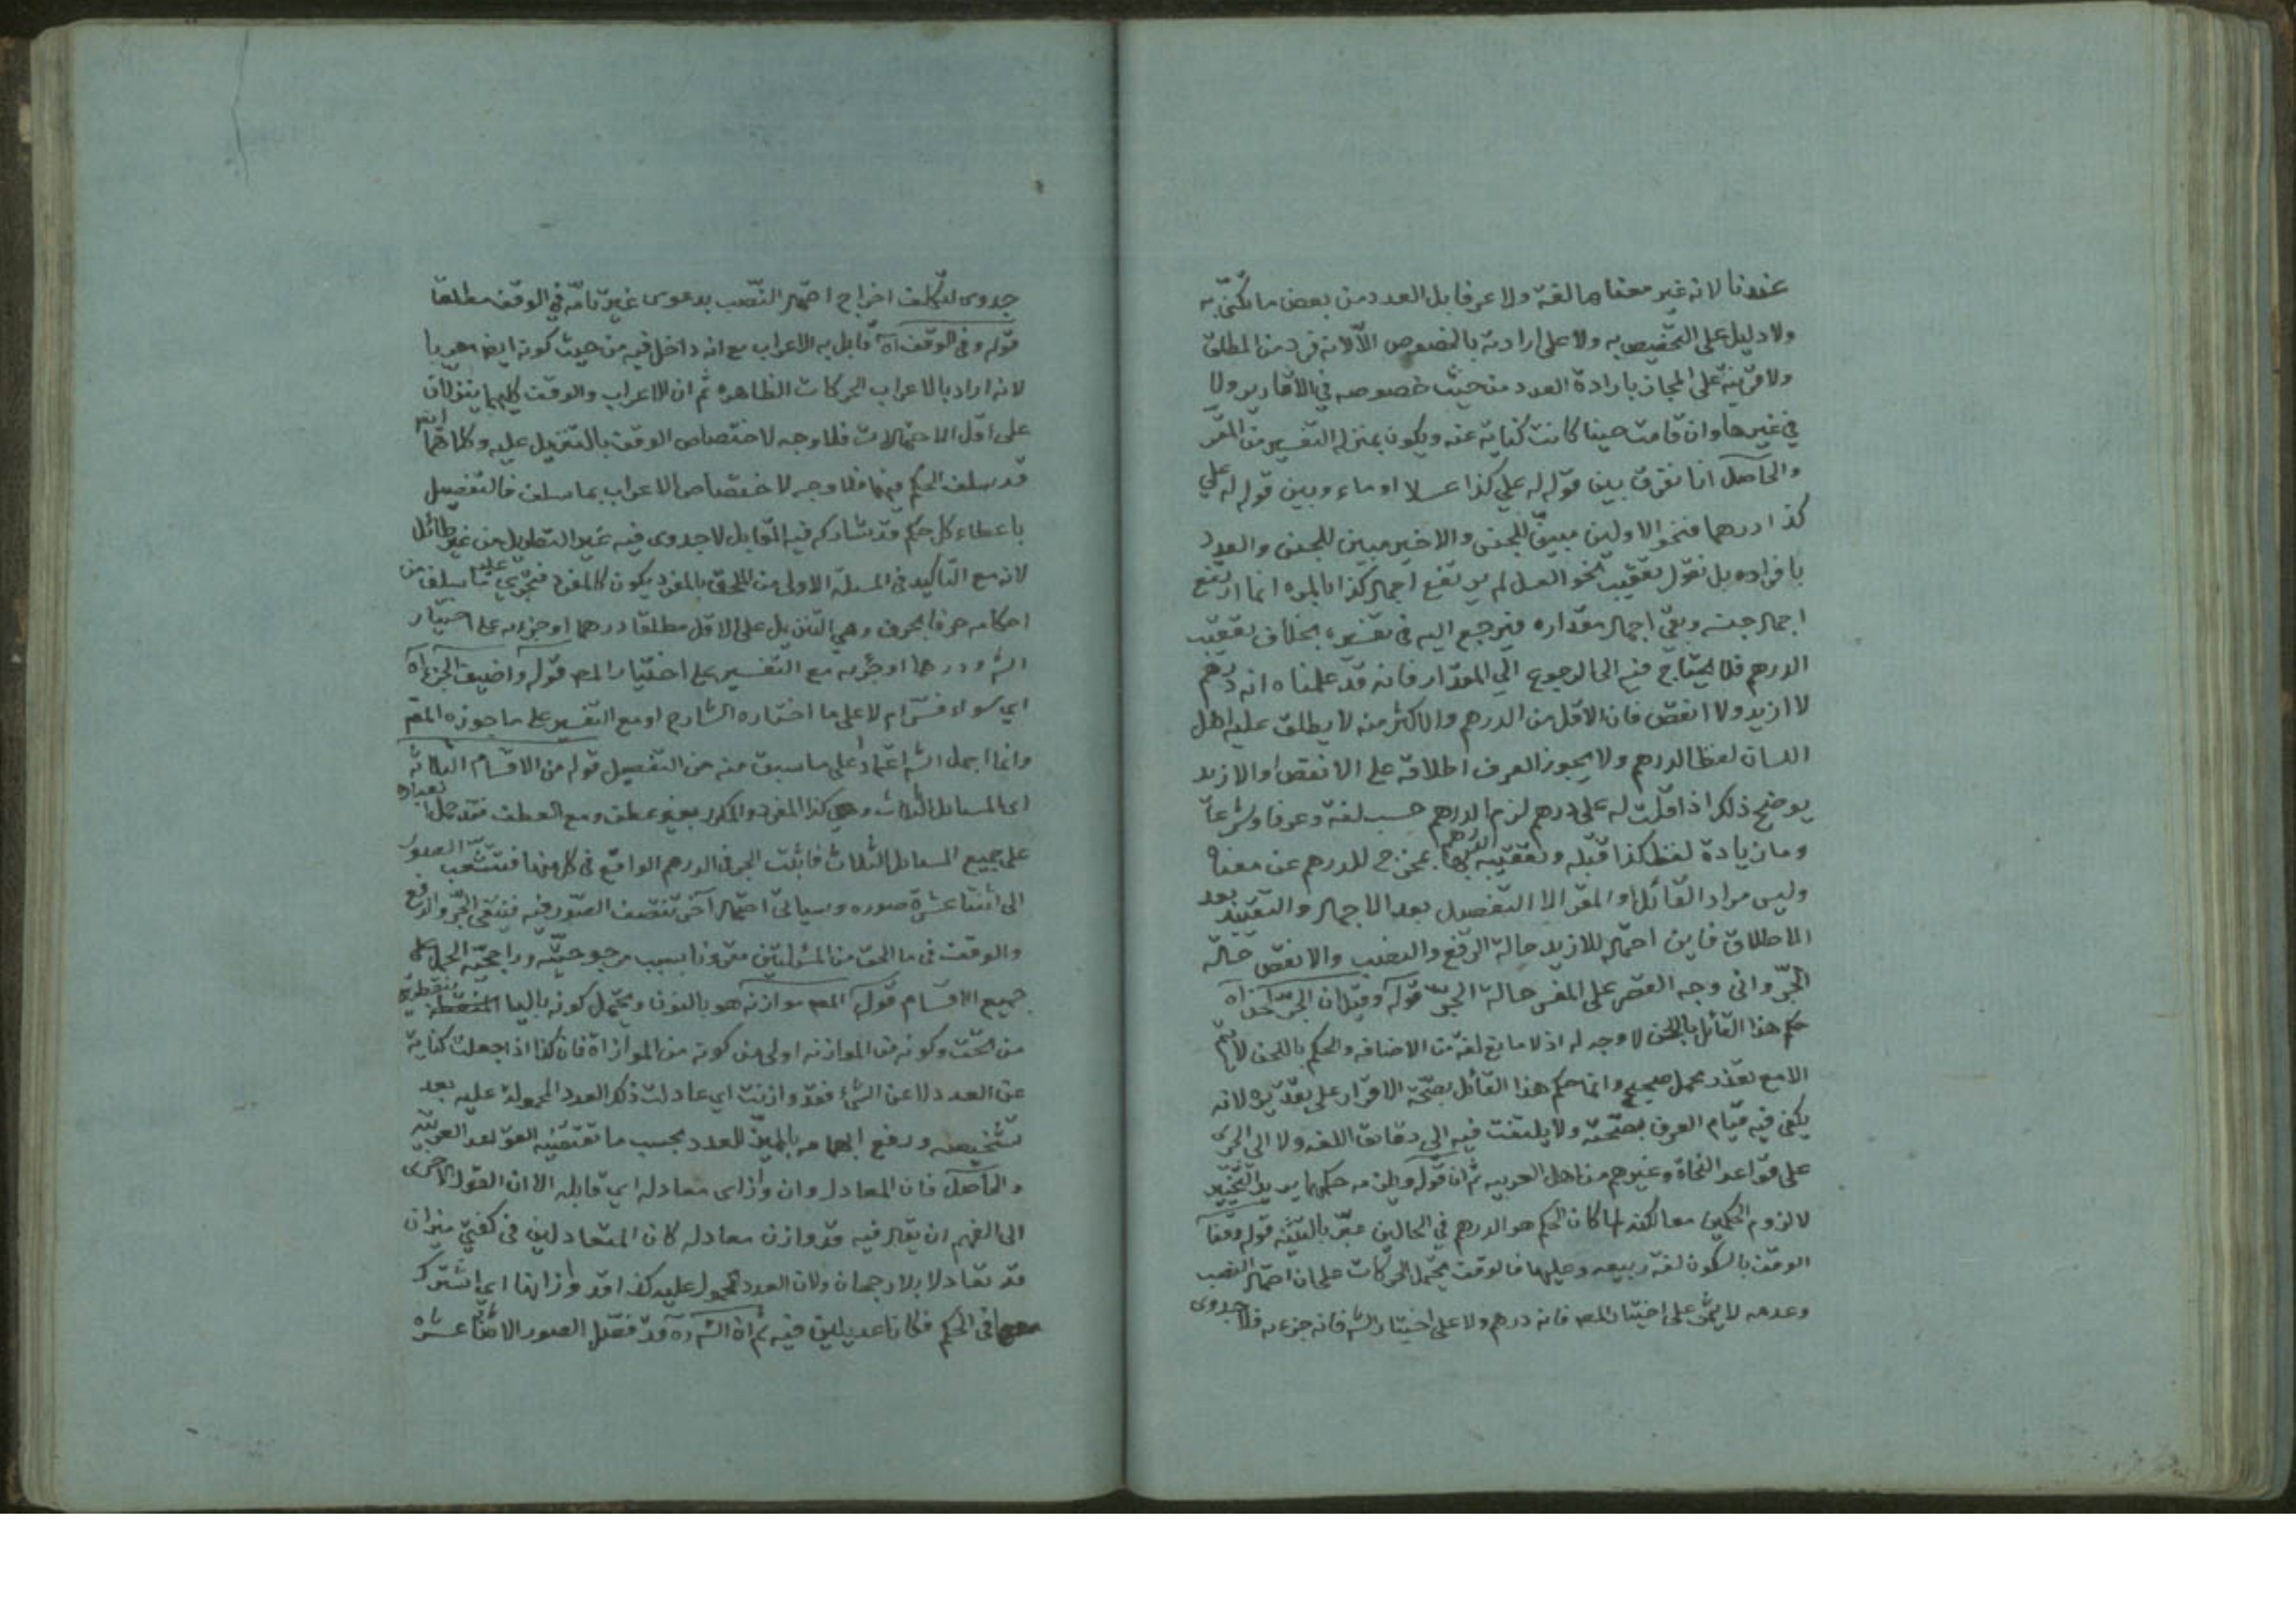 عندنا لانه غير معناها لغة ولا عرفا بل العدد من بعض ما تكنّى به
ولا دليل على التخصيص به ولا على ارادته بالخصوص الّا لانه فرد من المطلق
ولا قرينة على المجاز بارادة العدد من حيث خصوصه في الاقارير ولا
في غيرها وان قامت حينا كانت كناية عنه ويكون بمنزلة التفسير من المقر
والحاصل انا نفرق بين قوله له علي كذا عسلا او ماء وبين قوله له علي
كذا درهما فنحو الاولين مبيّن للجنس والاخير مبين للجنس والعدد
بافراده بل نقول بتعقيب نحو العسل لم يرتفع اجمال كذا بالمره انما ارتفع
اجمال جنسه وبقي اجمال مقداره فيرجع اليه في تفسيره بخلاف تعقيب
الدرهم فلا يحتاج فيه الى الرجوع الي المقدار فانه قد علمناه انه درهم
لا ازيد ولا انقص فان الاقل من الدرهم والاكثر منه لا يطلق عليه اهل
اللسان لفظ الدرهم ولا يجوز العرف اطلاقه على الانقص او الازيد
يوضح ذلك اذا قلت له على درهم لزم الدرهم حسب لغة وعرفا وشرعا
وما زيادة لفظ كذا قبله وتعقيبه بها الدرهم بمخرج للدرهم عن معناه
وليس مراد القائل او المقر الا التفصيل بعد الاجمال والتقييد بعد
الاطلاق فاين احتمال للازيد حالة الرفع والنصب والانقص حالة
الجرّ واني وجه القصر على المفسر حالة الجرّ قوله وقيل ان الجرّ لحن اه
حكم هذا القائل باللحن لا وجه له اذ لا مانع لغة من الاضافه والحكم باللحن لا يتم
الا مع تعذر محمل صحيح وانما حكم هذا القائل بصحّة الاقرار على تقديره لانه
يكفى فيه قيام العرف بصحّته ولا يلتفت فيه الى دقائق اللغه ولا الى الجرى
على قواعد النحاة وغيرهم من اهل العربيه ثم ان قوله ويلزمه حكمهما يريد التخيير
لا لزوم الحكمين معا لكنه لما كان الحكم هو الدرهم في الحالين عبّر بالتثنيه قوله وقفا
الوقف بالسكون لغة ربيعه وعليها فالوقف يحتمل الحركات على ان احتمال النصب
وعدمه لا يثمر على اختيار المص فانه درهم ولا على اختيار الشه فانه جزء منه فلا جدوى
جدوى لتكلف اخراج احتمال النّصب بدعوى غير تامّه في الوقف مطلقا
قوله وفى الوقف آه قابل به الاعراب مع انه داخل فيه من حيث كونه ايضا معربا
لانه اراد بالاعراب الحركات الظاهره ثم ان الاعراب والوقف كليهما ينزلان
على اقل الاحتمالات فلا وجه لاختصاص الوقف بالتنزيل عليه وكلاهما ايضا
قد سلف الحكم فيهما فلا وجه لاختصاص الاعراب بما سلف فالتفصيل
باعطاء كل حكم قد شاركه فيه المقابل لا جدوى فيه غير التطويل من غير طائل
لانه مع التاكيد فى المسئلة الاولى من الملحق بالمفرد يكون كالمفرد فتجري عليه ما سلف من
احكامه حرفا بحرف وهي التنزيل على الاقل مطلقا درهما او جزء منه على اختيار
الشه ودرهما او جزء منه مع التفسير على اختيار المص قوله واضيف الجزء آه
اي سواء فسّر ام لا على ما اختاره الشارح او مع التفسير على ما جوزه المص
وانما اجمل الشه اعتمادا على ما سبق منه من التفصيل قوله من الاقسام الثلاثه
اى المسائل الثلاث وهى كذا المفرد والمكرر بغير عطف ومع العطف فقد
على جميع المسائل الثلاث فاثبت الجر فى الدرهم الواقع فى كل منها فتتشعب الصور
الى اثنتا عشرة صوره وسياتى احتمال آخر تنتصف الصّور فيه فينتفى الجّر والرفع
والوقف فى ما الحق من المسئلتين مقرونا بسبب مرجوحيّته وراجحيّة الحمل على
جميع الاقسام قوله المص موازنه هو بالنون ويحتمل كونه باليا بنقطتين
من تحت وكونه من الموازنه اولى من كونه من الموازاة فان كذا اذا جعلت كناية
عن العدد لا عن الشئ فقد وازنت اي عادلت ذلك العدد المحمولة عليه بعد
تشخيصه ورفع ابهامه بالمميّز للعدد بحسب ما تقتضيه القواعد العربيّه
والحاصل فان المعادل وان وازى معادله اي قابله الا ان القول الاحرى
الى الفهم ان يقال فيه قد وازن معادله كان المتعادلين فى كفتي ميزان
قد تعادلا بلا رجحان ولان العدد المحمول عليه كذا قد وازانها اي اشترك
معها فى الحكم فكانا عديلين فيه ثم ان الشه ره قد فصّل الصور الاثنتا عشره